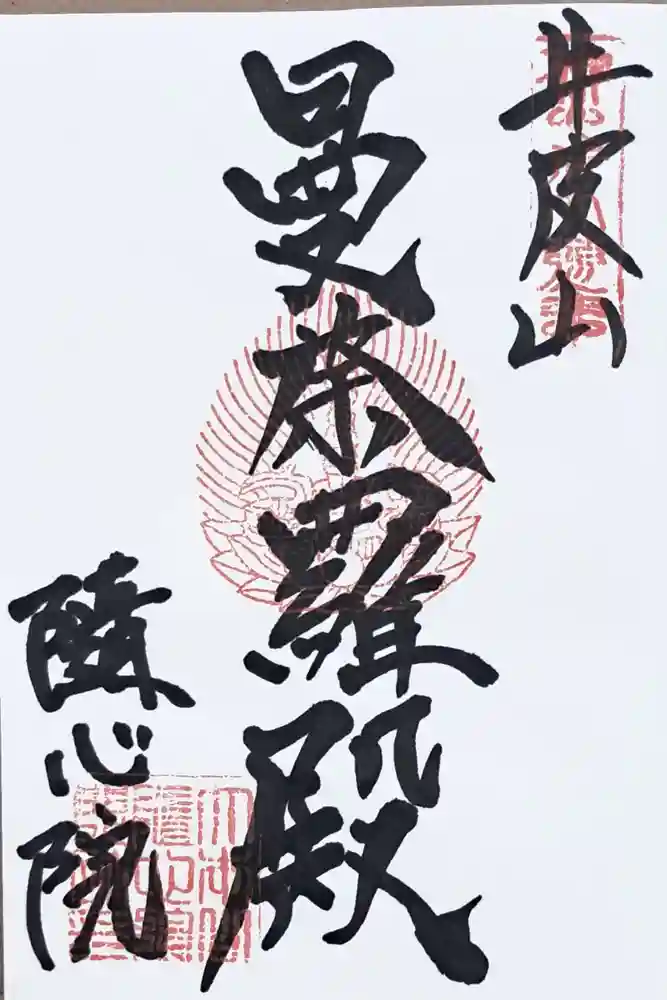 牛皮山
曼荼羅殿
隨心院